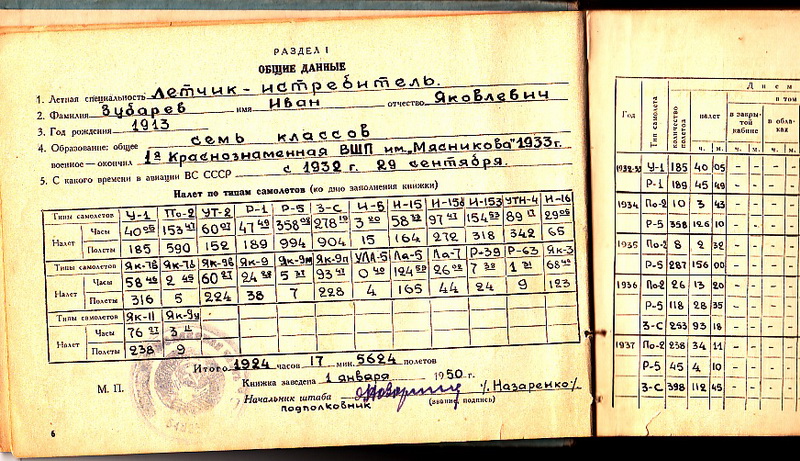 РАЗДЕЛ I
ОБЩИЕ ДАННЫЕ
1. Летная специальность Летчик-истребитель.
2. Фамилия Зубарев имя Иван отчество Яковлевич
3. Год рождения 1913
4. Образование: общее семь классов
военное — окончил 1ª Краснознаменная ВШП им. „Мясникова" 1933г.
5. С какого времени в авиации ВС СССР с 1932 г. 29 сентября.
Налет по типам самолетов (ко дню заполнения книжки)
Типы самолетов У-1 По-2 УТ-2 Р-1 Р-5 З-С И-5 И-15 И-15б И-153 УТИ-4 И-16
Налет Часы 40 05 153 47 60 07 47 49 358 278 3 20 58 97 47 154 53 89 17 29 05
Полеты 185 590 152 189 994 904 15 164 272 318 342 65
Типы самолетов Як-7в Як-7б Як-9в Як-9 Як-9м Як-9п УЛА-5 Ла-5 Ла-7 Р-39 Р-63 Як-3
Часы 58 2 60 24 5 93 0 40 124 26 7 1 68
Налет Полеты 316 5 224 38 7 228 4 165 44 24 9 123
Типы самолетов Як-11 Як-9у
Часы 76 3
Налет Полеты 238 9
Итого 1924 часов 17 мин. 5624 полетов
М. П. Книжка заведена 1 января 1950 г.
Начальник штаба /Назаренко/
подполковник (звание, подпись)
6
Днем
в том
Год Тип самолета количество полетов налет в закрытой кабине в обла-кая
ч. м. ч. м. ч. м.
1932-33 У-1 185 40 05 - - - -
Р-1 189 45 49 - - - -
1934 По-2 10 3 43 - - - -
Р-5 358 126 10 - - - -
1935 По-2 8 2 32 - - - -
Р-5 287 156 00 - - - -
1936 По-2 26 13 20 - - - -
Р-5 118 28 35 - - - -
З-С 253 93 18 - - - -
1937 По-2 238 34 11 - - - -
Р-5 45 4 10 - - - -
З-С 398 112 45 - - - -